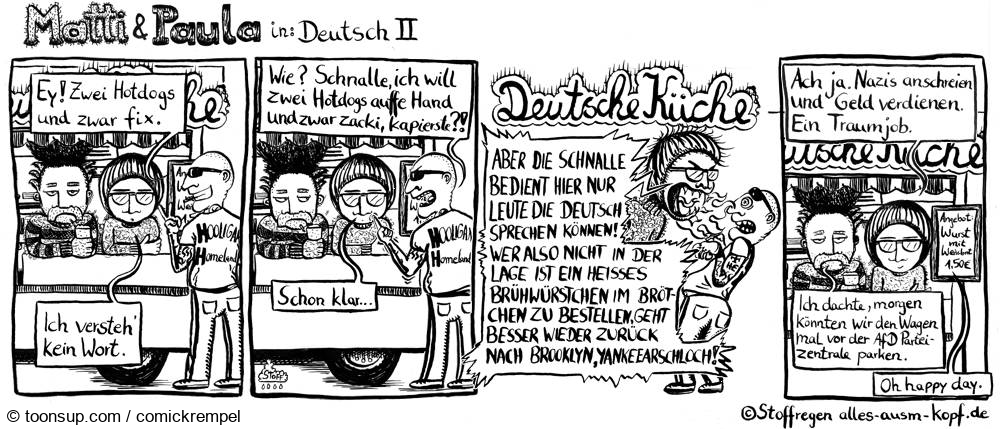 Matti & Paula in: Deutsch II
Ey! Zwei Hotdogs
und zwar fix.
Ich versteh'
kein Wort.
HOOLIGAN
Homeland
Wie? Schnalle, ich will
zwei Hotdogs auffe Hand
und zwar zacki, kapierste?!
Schon klar...
HOOLIGAN
Homeland
STOFF
Deutsche Küche
ABER DIE SCHNALLE
BEDIENT HIER NUR
LEUTE DIE DEUTSCH
SPRECHEN KÖNNEN!
WER ALSO NICHT IN DER
LAGE IST EIN HEISSES
BRÜHWÜRSTCHEN IM BRÖT-
CHEN ZU BESTELLEN, GEHT
BESSER WIEDER ZURÜCK
NACH BROOKLYN, YANKEEARSCHLOCH!
Ach ja. Nazis anschreien
und Geld verdienen.
Ein Traumjob.
utsche Küche
Angebot:
Wurst
mit
Weissbrot
1,50€
Ich dachte, morgen
könnten wir den Wagen
mal vor der AfD Partei-
zentrale parken.
Oh happy day.
© toonsup.com / comickrempel
©Stoffregen alles-ausm-kopf.de